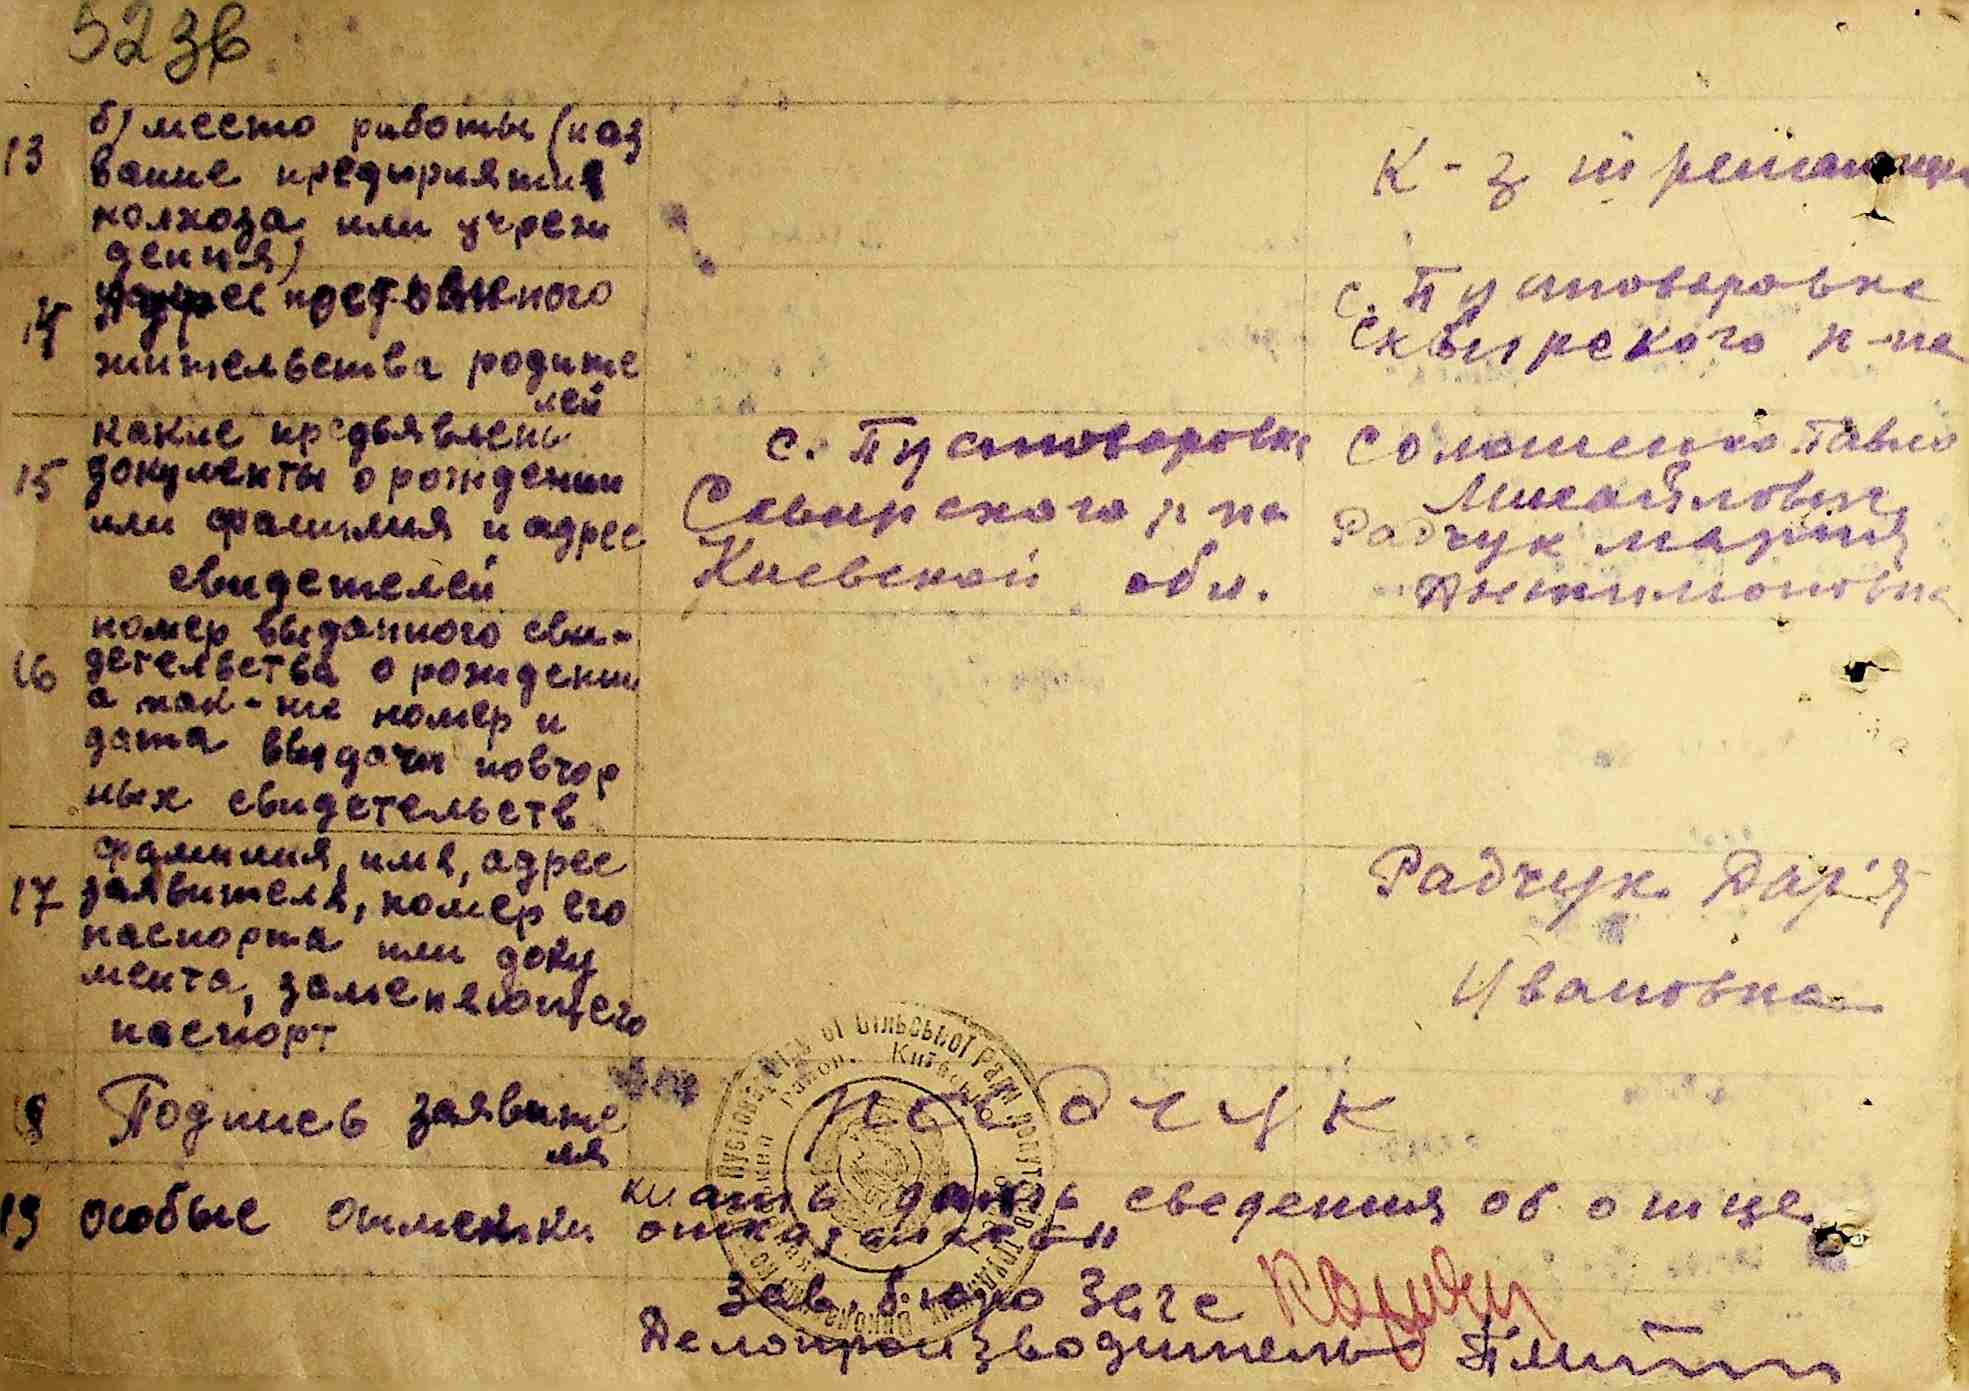 523в
13 б) место работы (наз
вание предприятия
колхоза или учреж
дения)
К-з ІІІ
14 Адрес постоянного
жительства родите
лей
с. Пустоваровка
Сквирского р-на
15 какие предъявлены
документы о рождении
или фамилия и адрес
свидетелей
с. Пустоваровка
Сквирского р-на
Киевской обл.
Соломенко Павло
Михайлович
Радчук Мария
Антимоновна
16 номер выданного сви-
детельства о рождении
а так-же номер и
дата выдачи повтор
ных свидетельств
17 фамилия, имя, адрес
заявителя, номер его
паспорта или доку
мента, заменяющего
паспорт
Радчук Дар'я
Ивановна
8 Подпись заявите
ля
Радчук
19 особые отметки мать дать сведения об отце
отказалась"
Зав. бюро Загс
Делопроизводитель
сільської ради депутатів трудящих
район. Київської